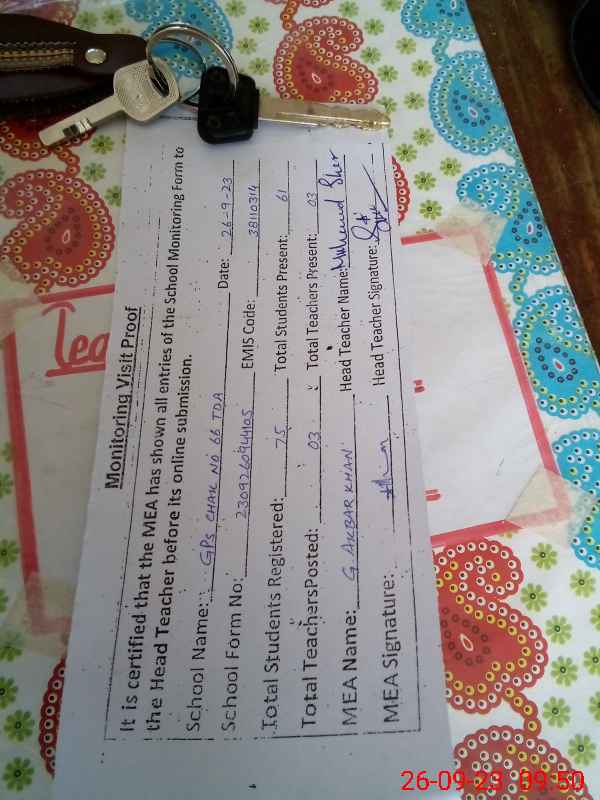 Monitoring Visit Proof
It is certified that the MEA has shown all entries of the School Monitoring Form to
the Head Teacher before its online submission.
School Name: GPS CHAK NO 66 TDA Date: 26-9-23
School Form No: 230926094405 EMIS Code: 38110314
Total Students Registered: 75 Total Students Present: 61
Total TeachersPosted: 03 Total Teachers Present: 03
MEA Name: G. AKBAR KHAN Head Teacher Name: Muhammad Sher
MEA Signature: Head Teacher Signature:
Tea
26-09-23 09:50